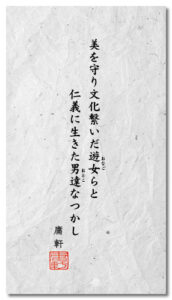 美を守り文化繋いだ遊女らと
仁義に生きた男達なつかし
庸軒